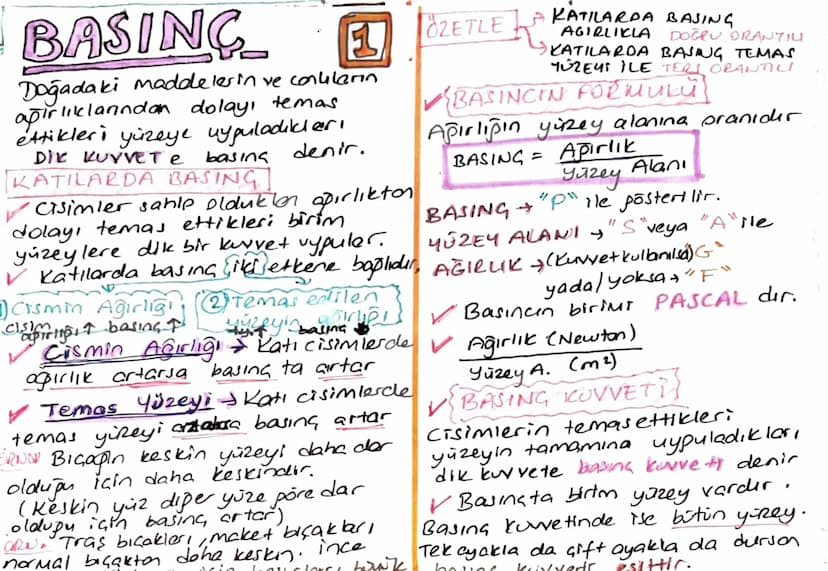 BASINÇ
1
Doğadaki maddelerin ve canlıların
ağırlıklarından dolayı temas
ettikleri yüzeye uyguladıkları
DİK KUVVET e basınç denir.
KATILARDA BASINÇ
✓ Cisimler sahip oldukları ağırlıktan
dolayı temas ettikleri birim
yüzeylere dik bir kuvvet uygular.
✓ Katılarda basınç iki etkene bağlıdır.
1) Cismin Ağırlığı
cisim ağırlığı↑ basınç↑
2) Temas edilen
yüzeyin
basınç
✓ Cismin Ağırlığı → Katı cisimlerde
ağırlık artarsa basınç ta artar
✓ Temas Yüzeyi → Katı cisimlerde
temas yüzeyi basınç artar
ÖRN: Bıçağın keskin yüzeyi daha dar
olduğu için daha keskindir.
(Keskin yüz diğer yüze göre dar
olduğu için basınç artar)
ÖRN: Traş bıçakları, maket bıçakları
normal bıçaktan daha keskin. ince
ÖZETLE
→ KATILARDA BASINÇ
AĞIRLIKLA DOĞRU ORANTILI
→ KATILARDA BASINÇ TEMAS
YÜZEYİ İLE TERS ORANTILI
✓ BASINCIN FORMÜLÜ
Ağırlığın yüzey alanına oranıdır
BASINÇ = Ağırlık
Yüzey Alanı
BASINÇ → "P" ile gösterilir.
YÜZEY ALANI → "S" veya "A" ile
AĞIRLIK → (Kuvvet kullanılsa) "G"
yada / yoksa → "F"
✓ Basıncın birimi PASCAL dır.
✓ Ağırlık (Newton)
Yüzey A. (m²)
✓ BASINÇ KUVVETİ
Cisimlerin temas ettikleri
yüzeyin tamamına uyguladıkları
dik kuvvete basınç kuvveti denir
✓ Basınçta birim yüzey vardır.
Basınç kuvvetinde ise bütün yüzey.
Tek ayakla da çift ayakla da dursan
basınç kuvveti eşittir.